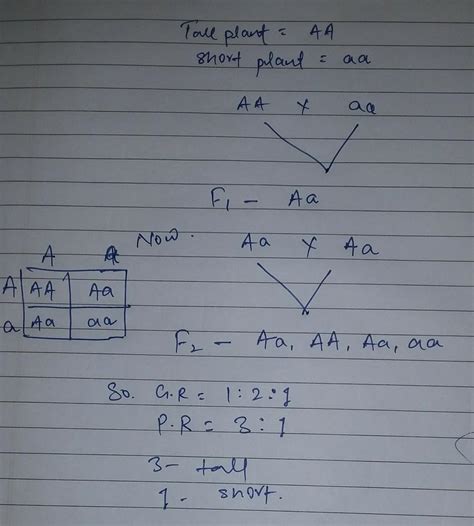 Tall plant = AA
short plant = aa
AA x aa
F1 - Aa
Now. Aa x Aa
A a
A AA Aa
a Aa aa
F2 - Aa, AA, Aa, aa
So. G.R = 1:2:1
P.R = 3:1
3- tall
1- short.